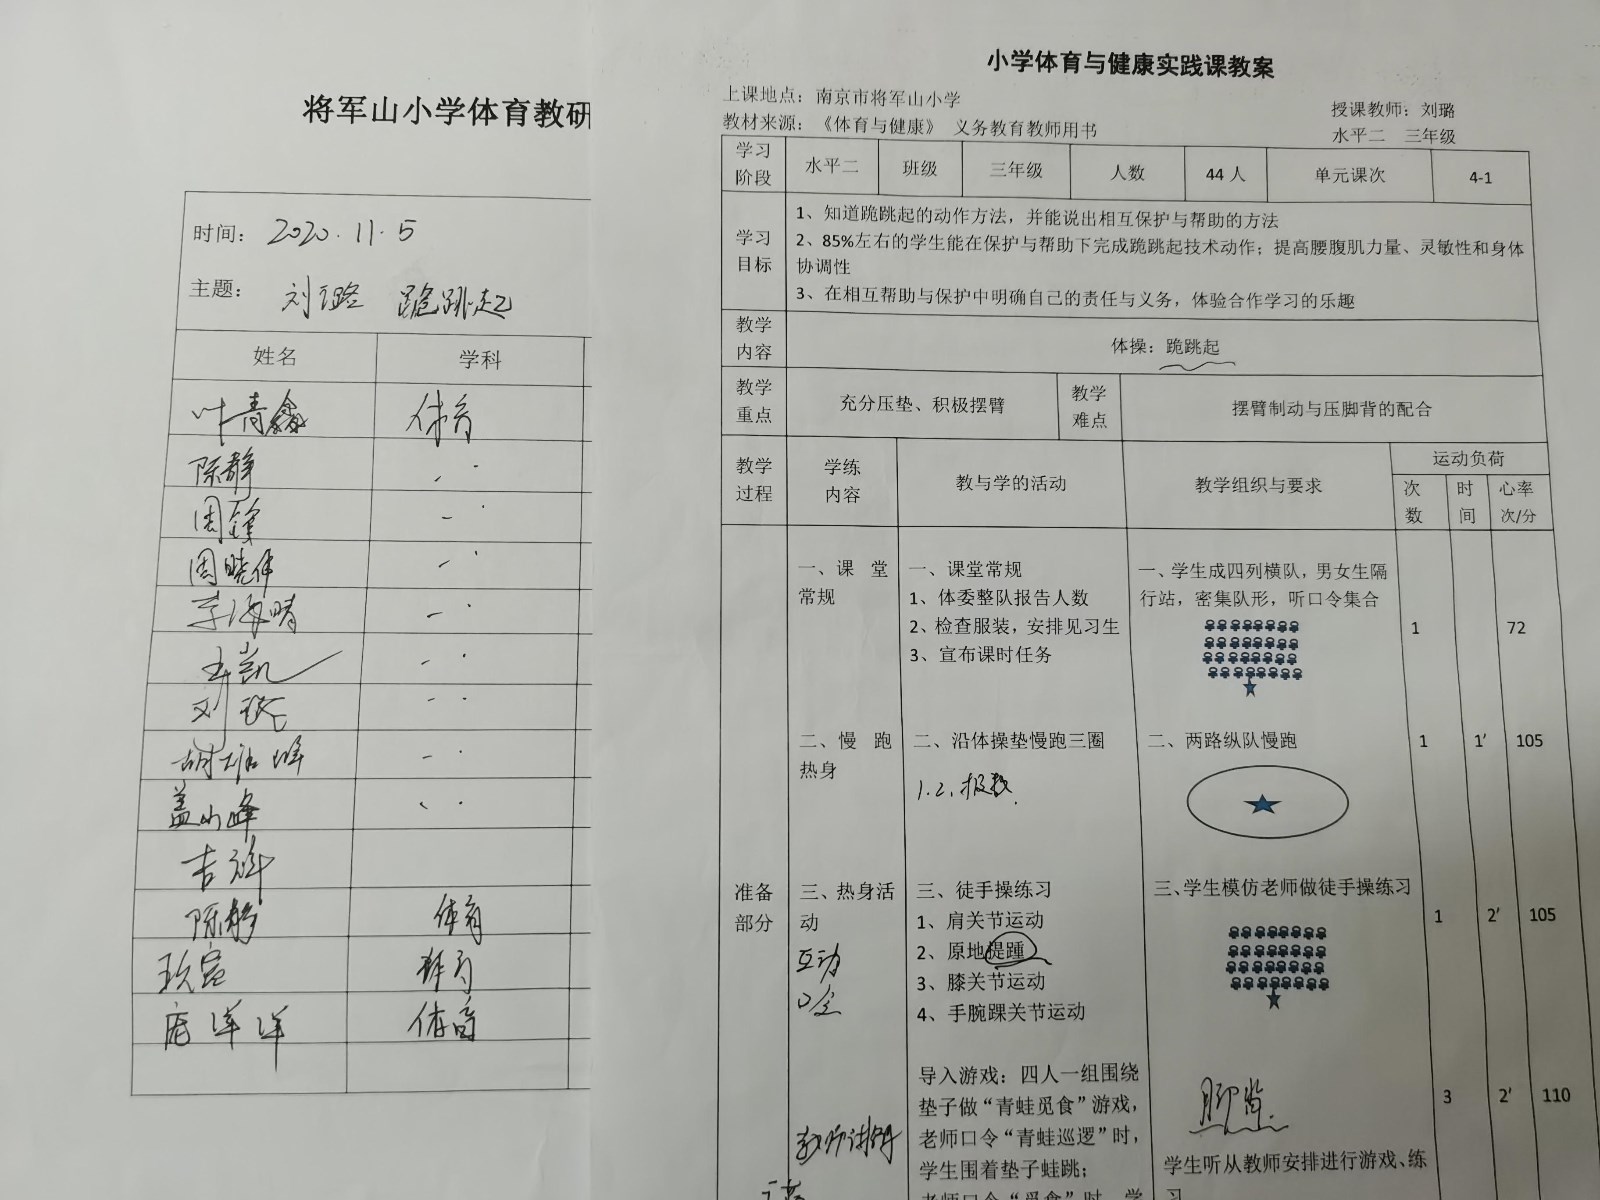 将军山小学体育教研
时间： 2020.11.5
主题： 刘璐 跪跳起
姓名 学科
叶青鑫 体育
陈静
周锋
周晓伟
李海晴
王凯
刘璐
胡
盖小峰
吉祥
陈静 体育
体育
庞洋洋 体育
小学体育与健康实践课教案
上课地点：南京市将军山小学 授课教师：刘璐
教材来源：《体育与健康》 义务教育教师用书 水平二 三年级
学习阶段 水平二 班级 三年级 人数 44 人 单元课次 4-1
学习目标
1、知道跪跳起的动作方法，并能说出相互保护与帮助的方法
2、85%左右的学生能在保护与帮助下完成跪跳起技术动作；提高腰腹肌力量、灵敏性和身体
协调性
3、在相互帮助与保护中明确自己的责任与义务，体验合作学习的乐趣
教学内容 体操：跪跳起
教学重点 充分压垫、积极摆臂 教学难点 摆臂制动与压脚背的配合
教学过程 学练内容 教与学的活动 教学组织与要求 运动负荷
次数 时间 心率次/分
准备部分
一、课 堂
常规
一、课堂常规
1、体委整队报告人数
2、检查服装，安排见习生
3、宣布课时任务
一、学生成四列横队，男女生隔
行站，密集队形，听口令集合
1 72
二、慢 跑
热身
二、沿体操垫慢跑三圈
1.2.报数
二、两路纵队慢跑
1 1′ 105
三、热身活
动
互动
口令
三、徒手操练习
1、肩关节运动
2、原地提踵
3、膝关节运动
4、手腕踝关节运动
三、学生模仿老师做徒手操练习
1 2′ 105
教师讲解
导入游戏：四人一组围绕
垫子做“青蛙觅食”游戏，
老师口令“青蛙巡逻”时，
学生围着垫子蛙跳；
老师口令“觅食”时，学
脚背
学生听从教师安排进行游戏、练
习
3 2′ 110